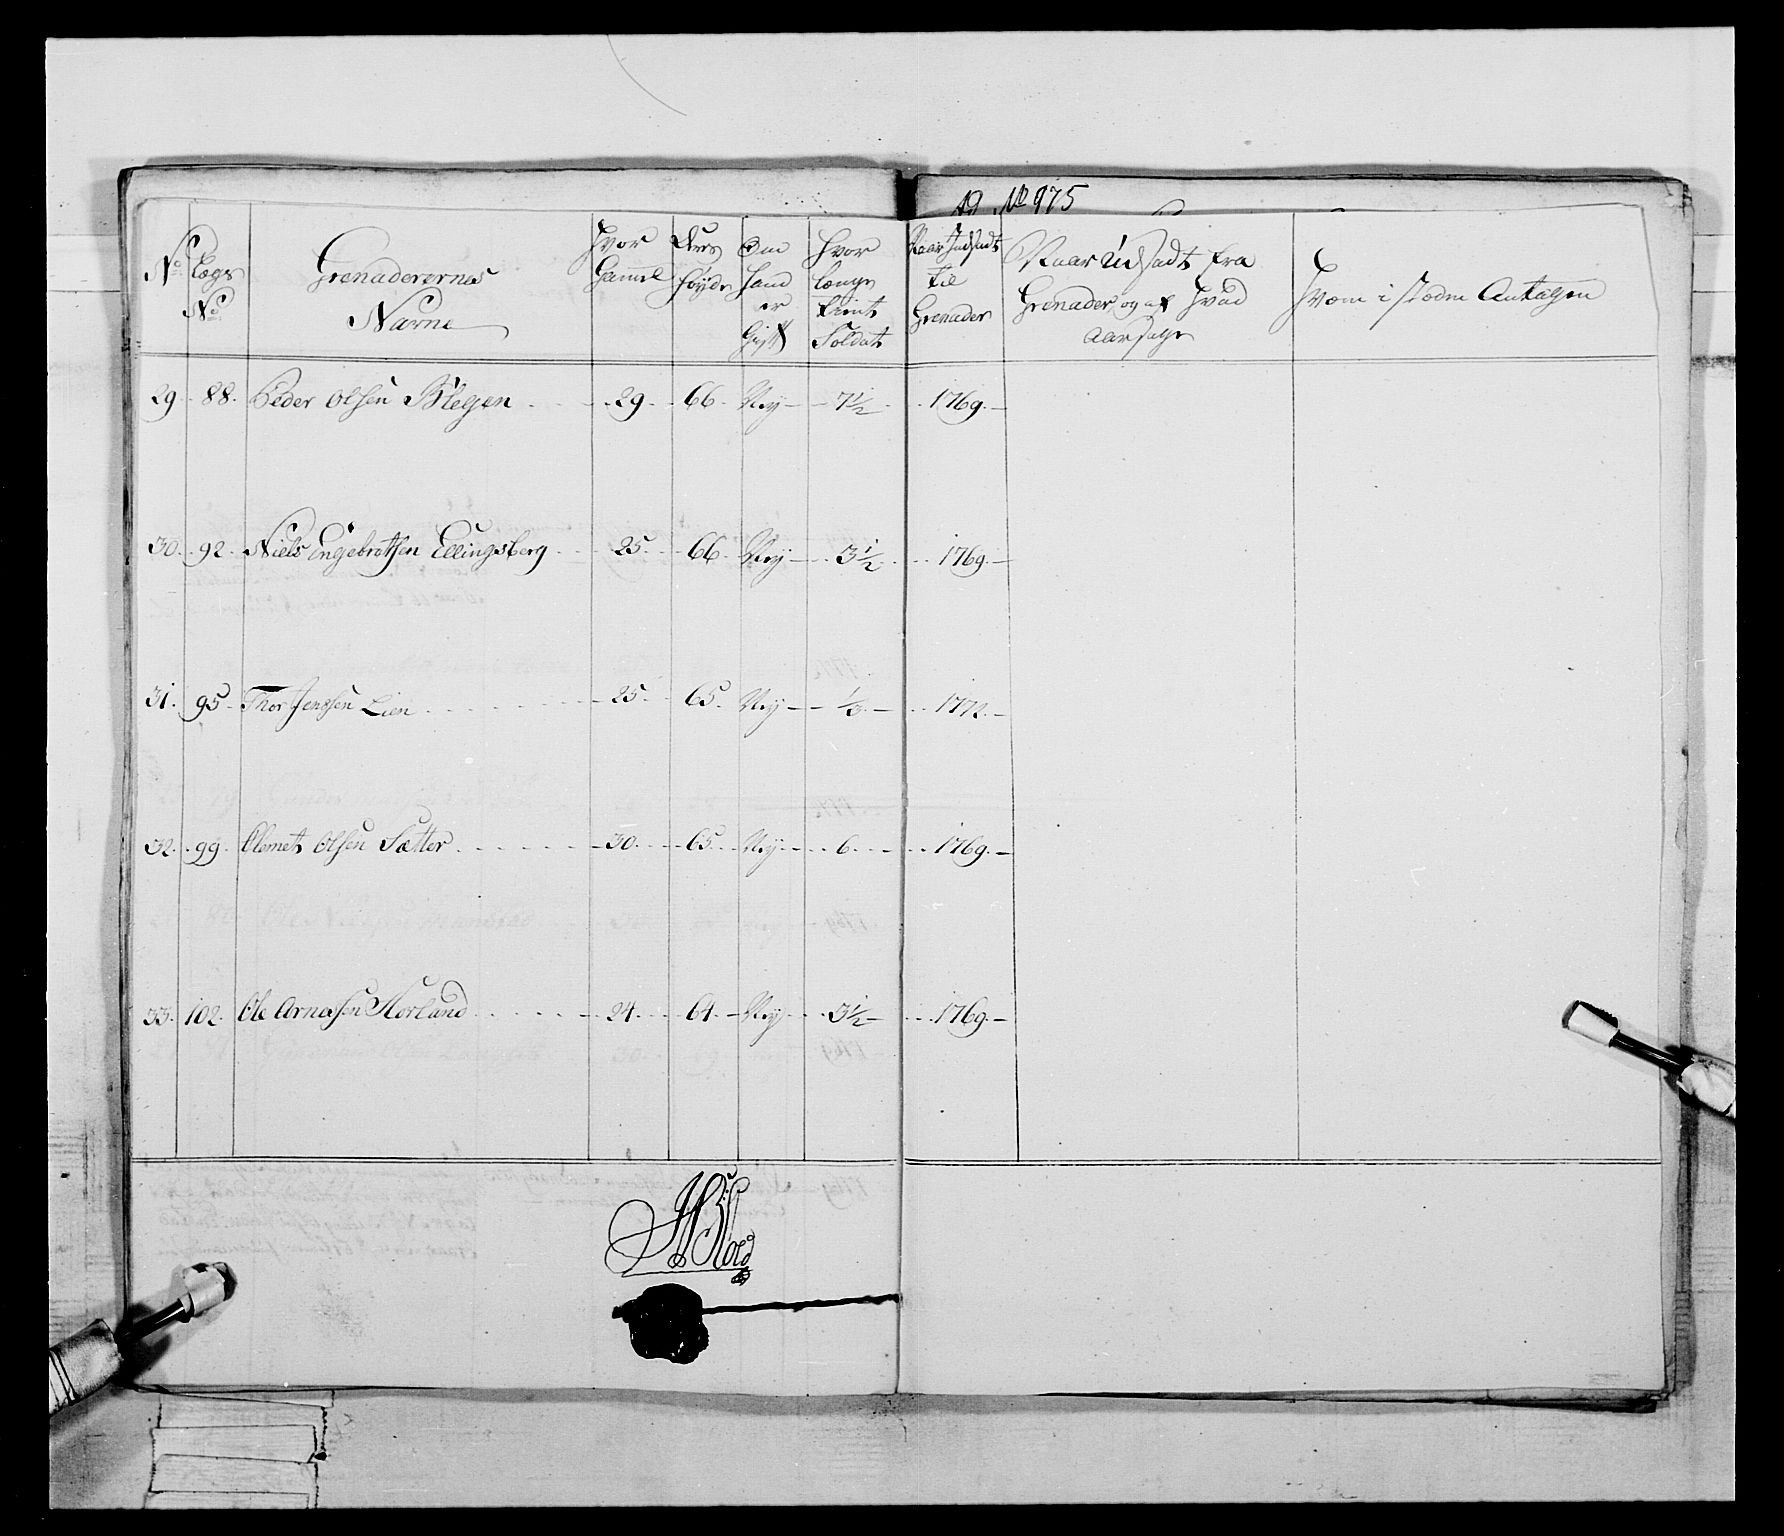 Ad No 975
No
Lægs
No
Grenaderernes
Navne
Hvor
Gamel
Deres
Høyde
Om
hand
er
Gift
Hvor
længe
tient
Soldat
Naar Indsadt
til
Grenader
Naar Udsadt fra
Grenader og af Hvad
Aarsage
Hvem i stæden Antagen
29. 88. Peder Olsen Blegen 29. 66. Ney 7 1/2 1769.
30. 92. Niels Engebretsen Ellingsberg 25. 66. Ney 3 1/2 1769.
31. 95. Thor Jenssen Lien 25. 65. Ney 1/3 1772.
32. 99. Clemet Olsen Sætter 30. 65. Ney 6. 1769.
33. 102. Ole Arnessen Norland 24. 64. Ney 3 1/2 1769.